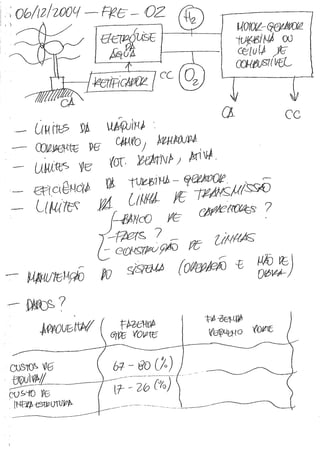 06/12/2004 - FRE - 02
H2
ELETRÓLISE
DA
ÁGUA
MOTOR-GERADOR
TURBINA OU
CÉLULA DE
COMBUSTÍVEL
RETIFICADOR
CC
O2
CA
CA
CC
- LIMITES DA MÁQUINA:
- CORRENTE DE CAMPO, ARMADURA
- LIMITES DE POT. REATIVA, ATIVA.
- EFICIÊNCIA DA TURBINA-GERADOR
- LIMITES DA LINHA DE TRANSMISSÃO
- BANCO DE CAPACITORES?
- FACTS?
- CONSTRUÇÃO DE LINHAS
- MANUTENÇÃO DO SISTEMA (OPERAÇÃO E MÃO DE OBRA)
- DADOS?
APROVEITA//
FAZENDA
GDE PORTE
FAZENDA
PEQUENO PORTE
CUSTOS DE
EQUIPA//
67 - 80 (%)
CUSTO DE
INFRAESTRUTURA
17 - 26 (%)